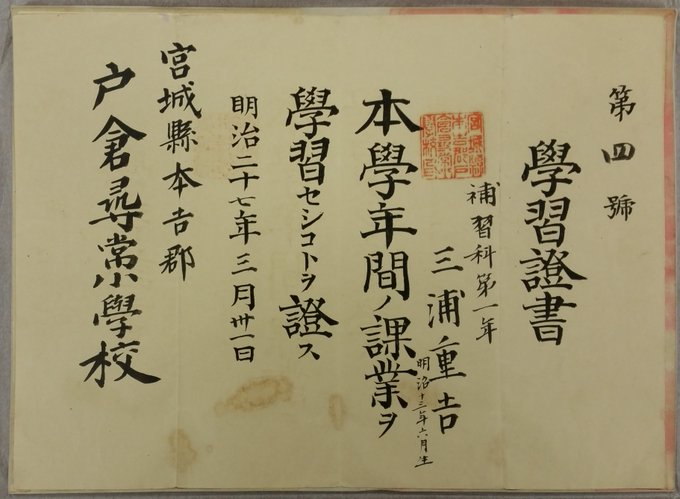 第四號
學習證書
補習科第一年
三浦重吉
明治十三年六月生
本學年間ノ課業ヲ
學習セシコトヲ證ス
明治二十七年三月卅一日
宮城縣本吉郡
戶倉尋常小學校